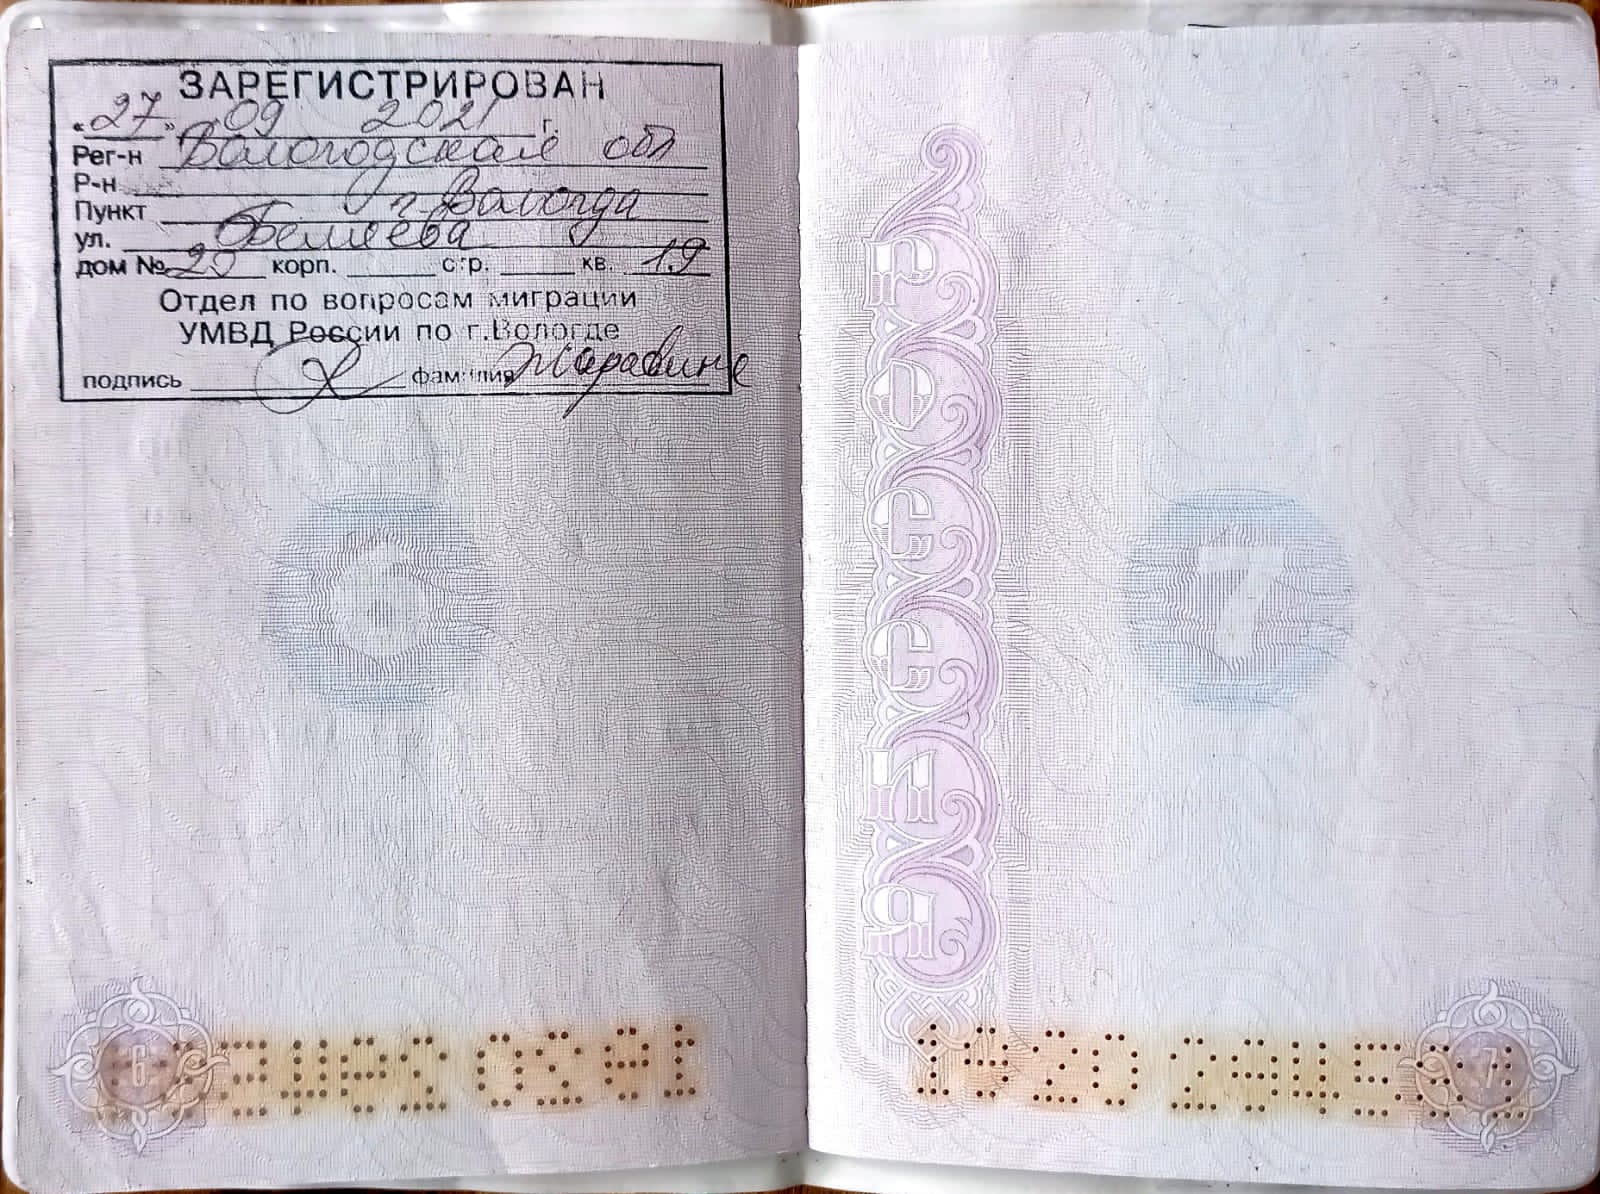 ЗАРЕГИСТРИРОВАН
«27» 09 2021 г.
Рег-н Вологодская обл
Р-н
Пункт г. Вологда
ул. Беляева
дом № 29 корп. стр. кв. 19
Отдел по вопросам миграции
УМВД России по г.Вологде
подпись фамилия
6
РОССИЯ
7
6
19 20
7